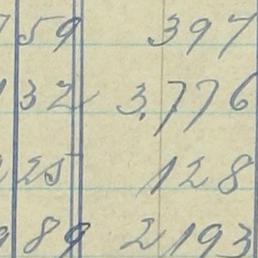 59 397
32 3,776
25 128
89 2193